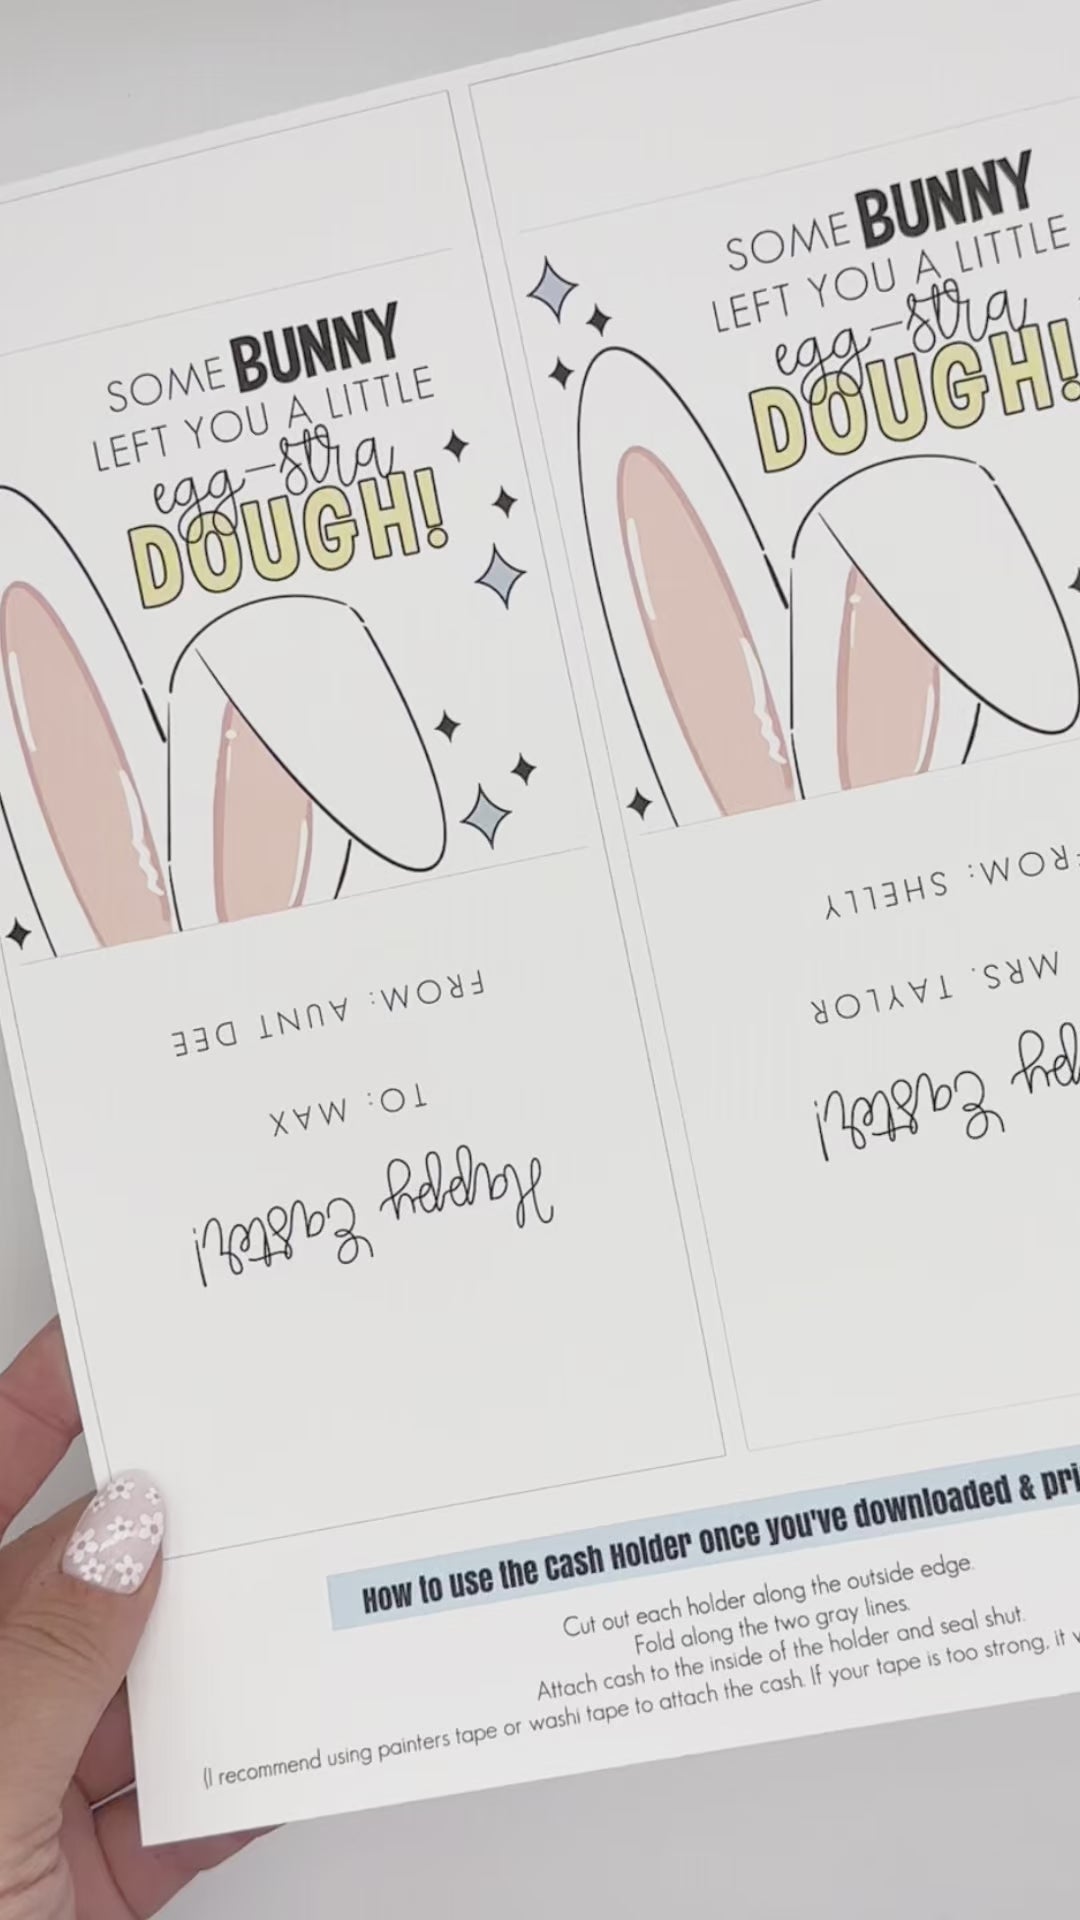 SOME BUNNY
LEFT YOU A LITTLE
egg-stra
DOUGH!
FROM: AUNT DEE
TO: MAX
Happy Easter!
SOME BUNNY
LEFT YOU A LITTLE
egg-stra
DOUGH!
FROM: SHELLY
MRS. TAYLOR
Easter!
How to use the Cash Holder once you've downloaded &
Cut out each holder along the outside edge.
Fold along the two gray lines.
Attach cash to the inside of the holder and seal shut.
(I recommend using painters tape or washi tape to attach the cash. If your tape is too strong, it